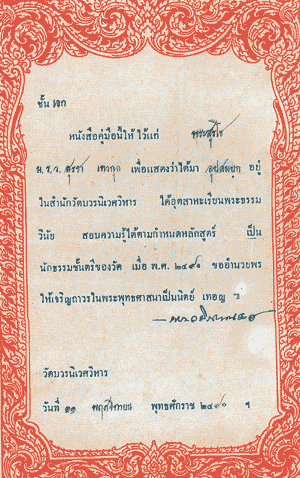 ชั้น เอก
หนังสือคู่มือนี้ให้ ไว้แก่ พระสุรโช
ม.ร.ว. สุรชา เทวกุล เพื่อแสดงว่าได้มา อุปสมบท อยู่
ในสำนักวัดบวรนิเวศวิหาร ได้อุตสาหะเรียนพระธรรม
วินัย สอบความรู้ได้ตามกำหนดหลักสูตร์ เป็น
นักธรรมชั้นตรีของวัด เมื่อ พ.ศ. ๒๔๙๐ ขออำนวยพร
ให้เจริญถาวรในพระพุทธศาสนาเป็นนิตย์ เทอญ ฯ
วัดบวรนิเวศวิหาร
วันที่ ๑๑ พฤศจิกายน พุทธศักราช ๒๔๙๐ ฯ